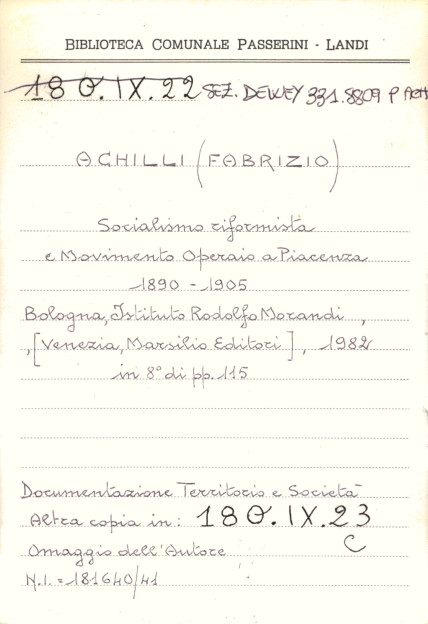 BIBLIOTECA COMUNALE PASSERINI - LANDI
180.IX.22 SEZ. DEWEY 331.8809 P ACH
ACHILLI (FABRIZIO)
Socialismo riformista
e Movimento Operaio a Piacenza
1890 - 1905
Bologna, Istituto Rodolfo Morandi ,
, [Venezia, Marsilio Editori] , 1982
in 8° di pp. 115
Documentazione Territorio e Società
Altra copia in: 180.IX.23
C
Omaggio dell'Autore
N.I. = 181640/41